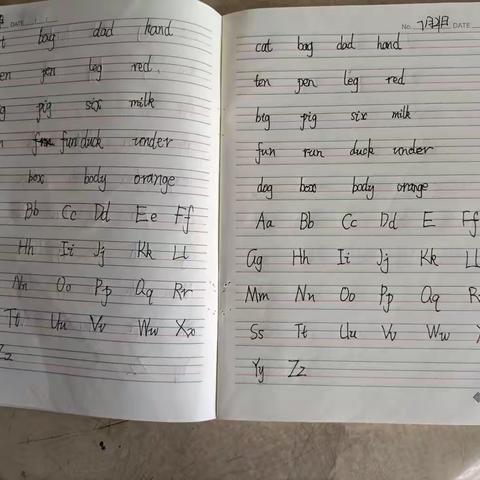 DATE
bag dad hand
pen leg red
pig six milk
fun duck under
box body orange
Bb Cc Dd Ee Ff
Hh Ii Jj Kk Ll
Nn Oo Pp Qq Rr
Tt Uu Vv Ww Xx
Zz
No. DATE
cat bag dad hand
ten pen leg red
big pig six milk
fun run duck under
dog box body orange
Aa Bb Cc Dd E Ff
Gg Hh Ii Jj Kk Ll
Mm Nn Oo Pp Qq R
Ss Tt Uu Vv Ww
Yy Zz